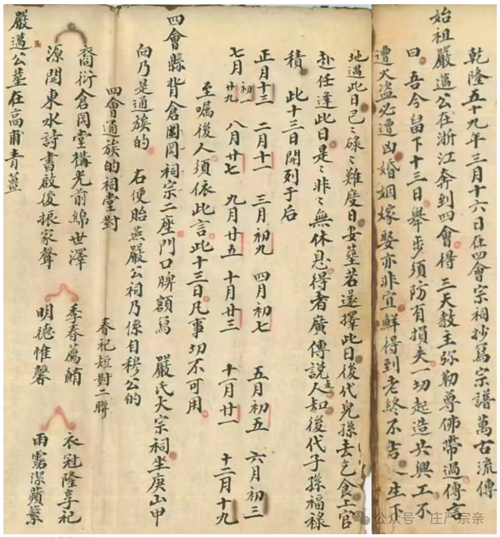 乾隆五十九年三月十六日在四會宗祠抄寫宗譜萬古流傳
始祖嚴邁公在浙江奔到四會得 三天教主弥勒尊佛帶過傳言
曰 吾今留下十三日舉步須防有損失一切起造共興工不
遭天盗必遭凶婚姻嫁娶亦非宜鮮得到老終不吉 生下
地遇此日己碌々難度日安塟若还擇此日後代兒孫去乞食上官
赴任逢此日是々非々無休息得者廣傳說人知後代子孫福禄
積 此十三日開列于后
正月十三 二月十一 三月初九 四月初七 五月初五 六月初三
七月初一廿九 八月廿七 九月廿五 十月廿三 十一月廿一 十二月十九
至嘱後人須依此言此十三日凡事切不可用
四會縣背倉岡祠宗二座門口牌額寫 嚴氏大宗祠坐庚山甲
向乃是通族的 右便貽燕嚴公祠乃係自穆公的
四會通族的祠堂對 春祀短對二聯
裔衍倉岡堂構光前綿世澤 季春薦鮪 衣冠隆享祀
源開東水詩書啟後振家聲 明德惟馨 雨露潔蘋蘩
嚴邁公墓在高甫青乃薑
公众号 · 庄严宗亲